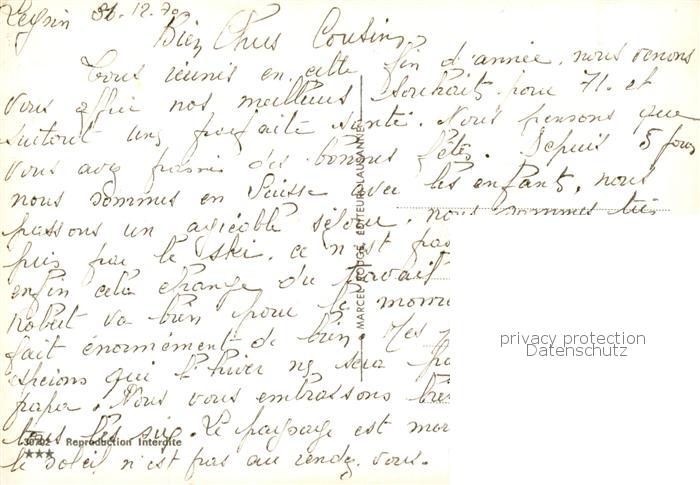 Leysin 30.12.70
Bien Chers Cousins
Tous réunis en cette fin d'année, nous venons
vous offrir nos meilleurs souhaits pour 71. et
surtout une parfaite santé. Nous pensons que
vous avez passé des bonnes fêtes. Depuis 5 jours
nous sommes en Suisse avec les enfants, nous
passons un agréable séjour, nous sommes
pris par le ski, ce n'est pas
enfin cela change du travail
Robert va bien pour le
fait énormément de bien. Mes
espérons que l'hiver ne sera
papa. Nous vous embrassons
tous les six. Le paysage est
le soleil n'est pas au rendez-vous.
MARCEL ROUGE, ÉDITEUR, LAUSANNE
30702 Reproduction Interdite
★★★
privacy protection
Datenschutz